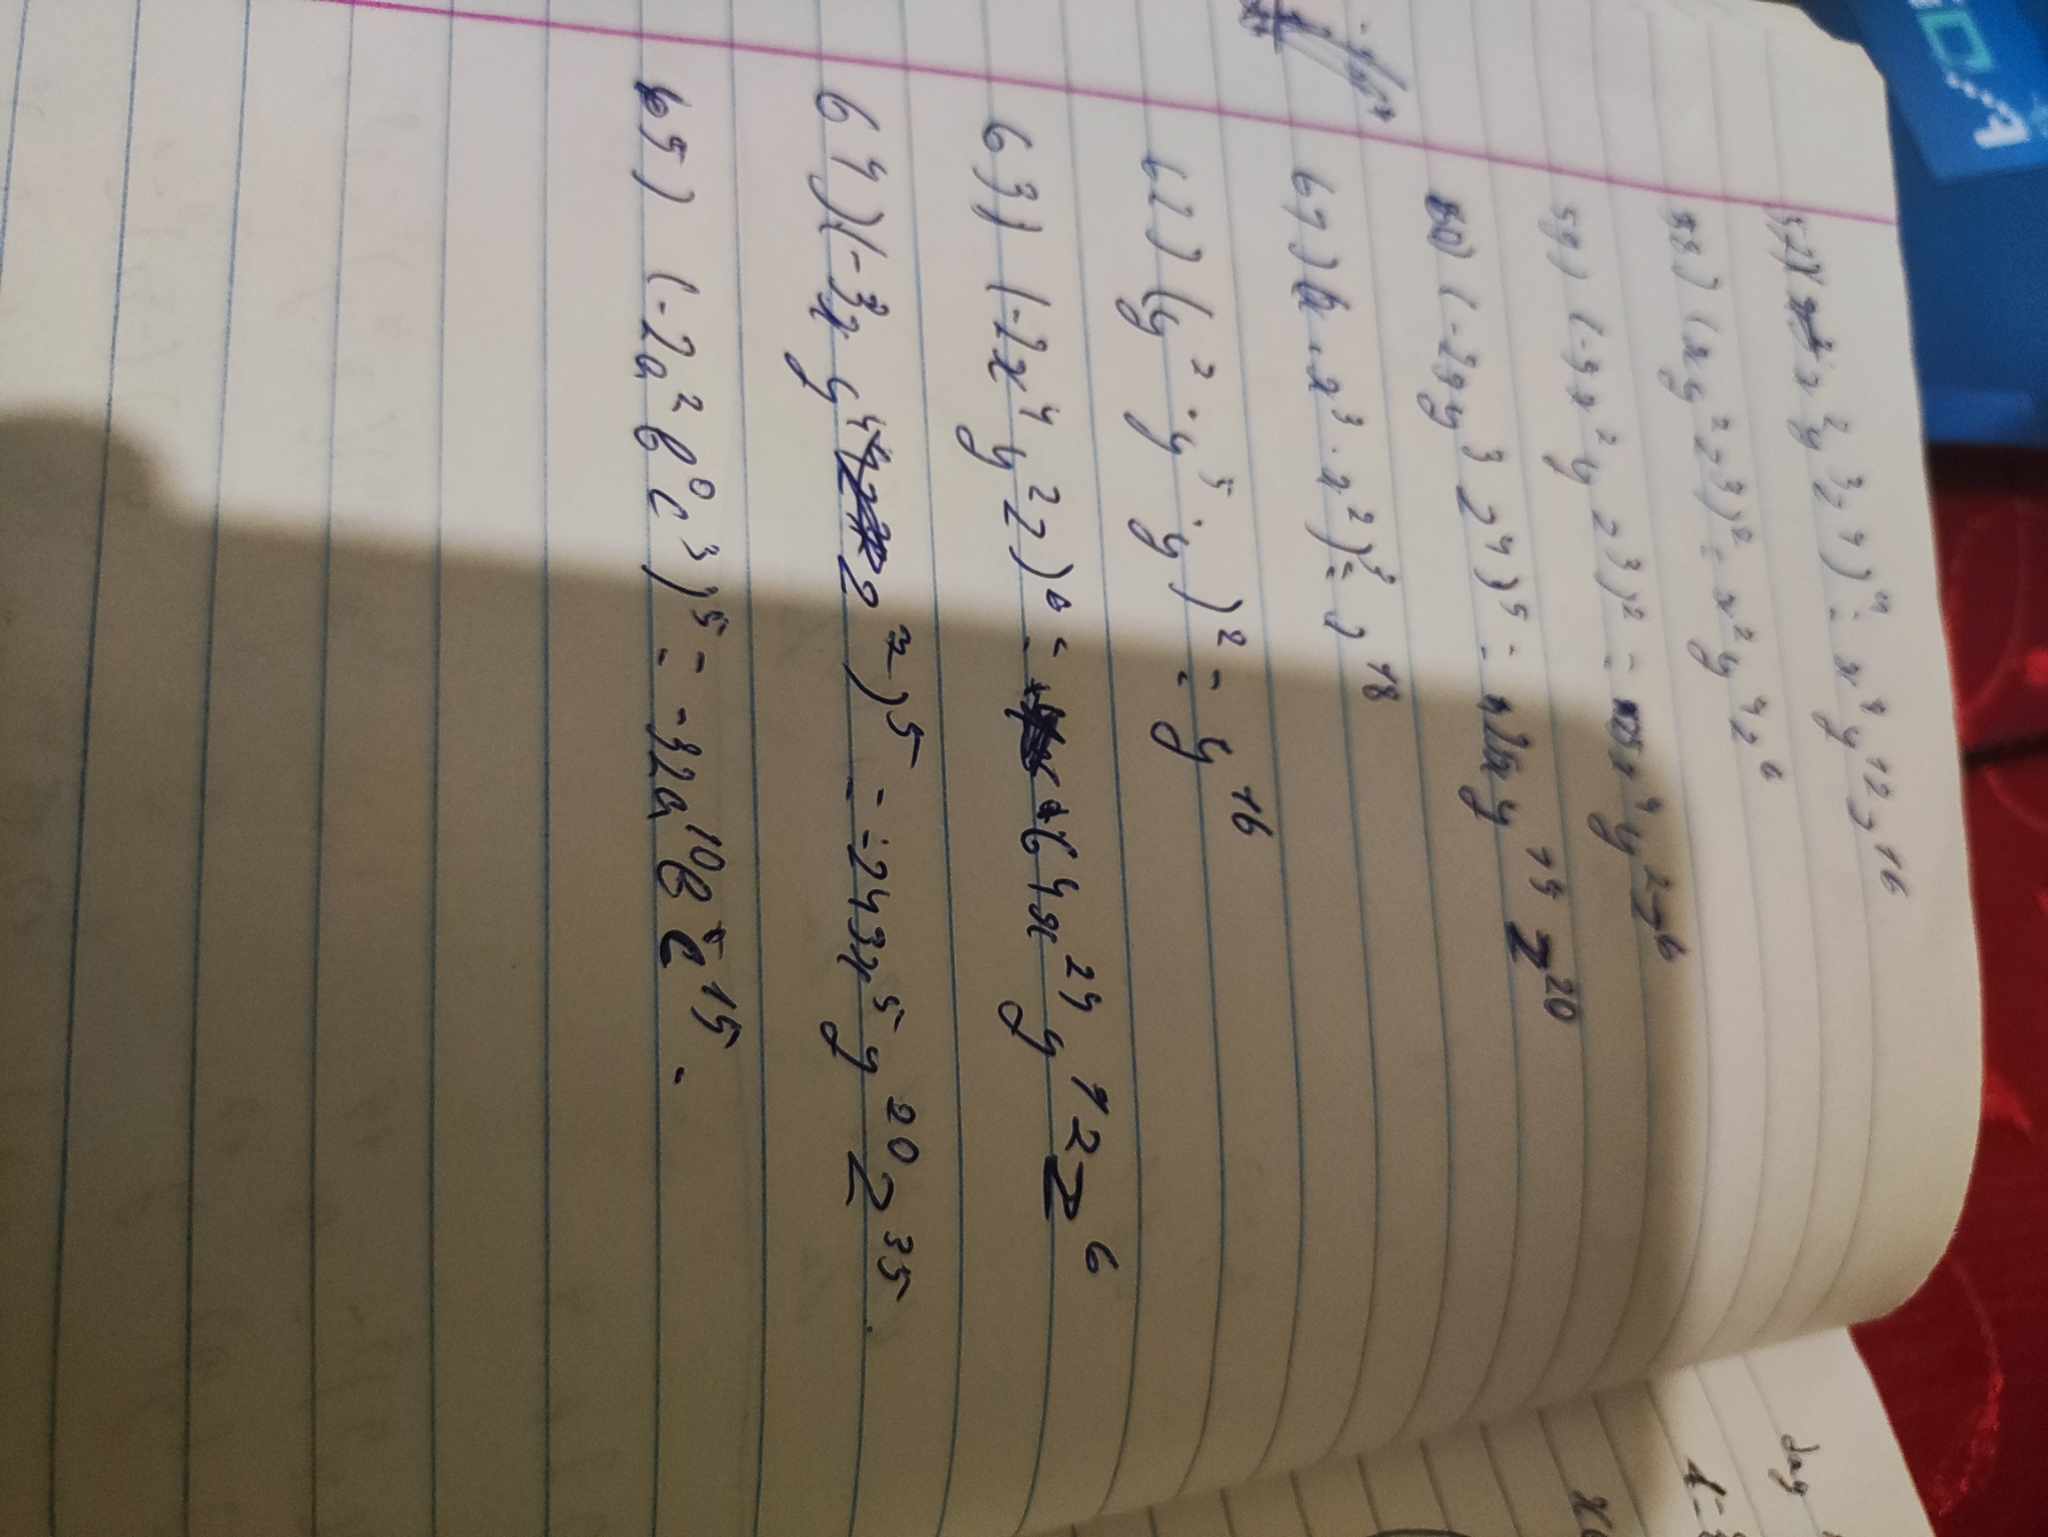 x²y³z⁴)⁴ = x⁸y¹²z¹⁶
58) (xy²z³)² = x²y⁴z⁶
59) (-5x²yz³)² = x⁴y²z⁶
60) (-2xy³z⁴)⁵ = y¹⁵z²⁰
61) (x·x³·x²)³ = x¹⁸
62) (y²·y⁵·y)² = y¹⁶
63) (-2x⁴y²z)⁶ = +64x²⁴y¹²z⁶
64) (-3x y⁴z⁷)⁵ = -243x⁵y²⁰z³⁵.
65) (-2a²b⁰c³)⁵ = -32a¹⁰b⁰c¹⁵.